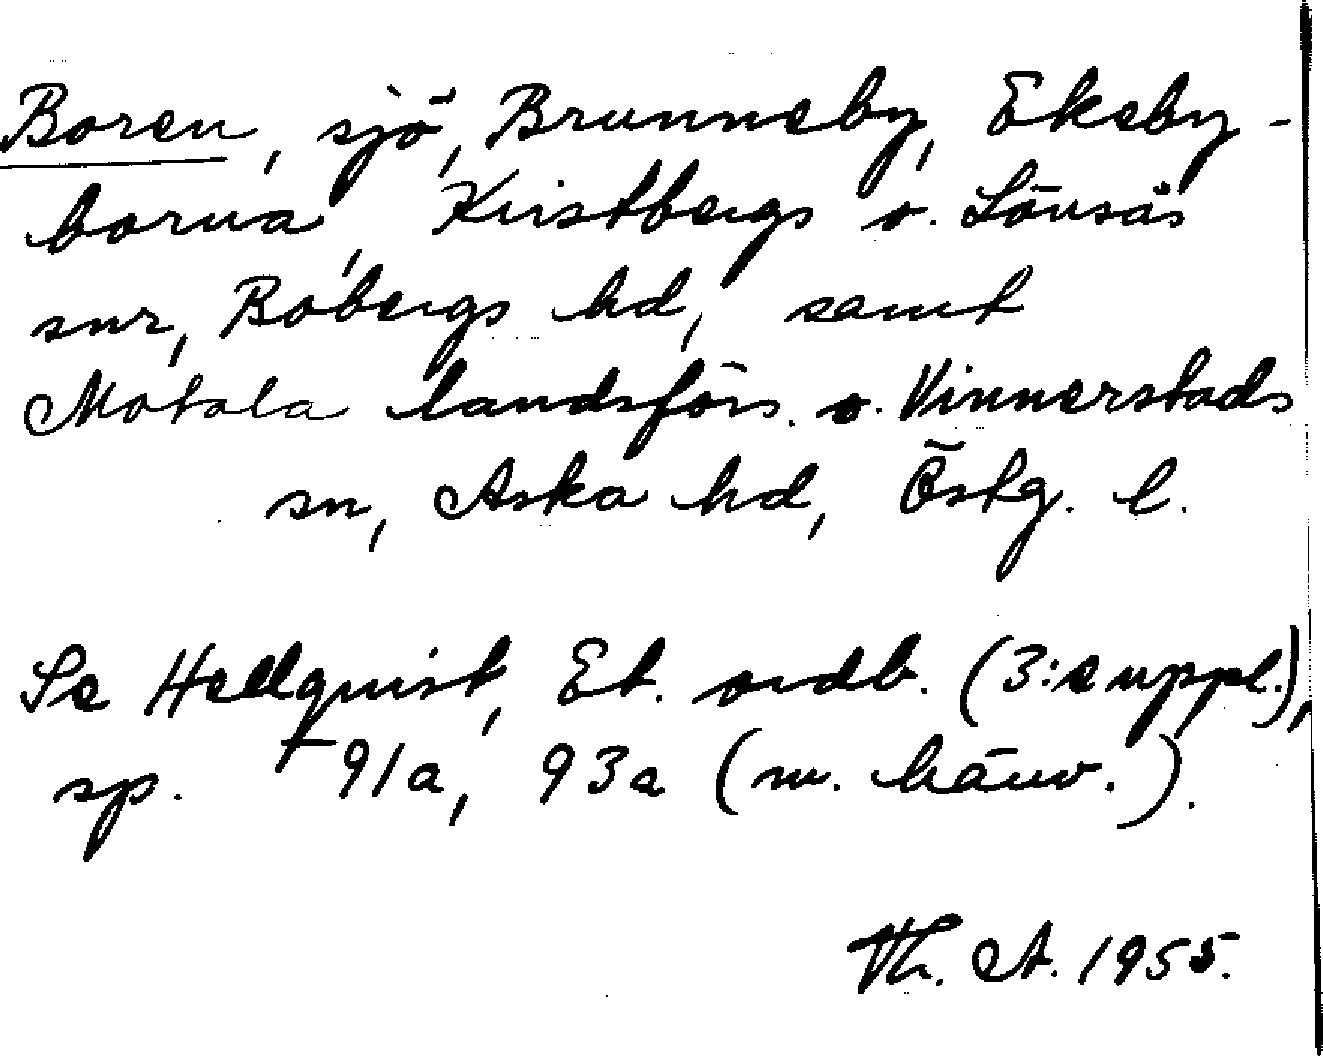 Boren, sjö, Brunneby, Ekeby-
borna, Kristbergs o. Lönsås
snr, Bobergs hd, samt
Motala landsförs. o. Vinnerstads
sn, Aska hd, Östg. l.
Se Hellquist, Et. ordb. (3:e uppl.),
sp. 91a, 93a (m. hänv.).
Th. A. 1955.